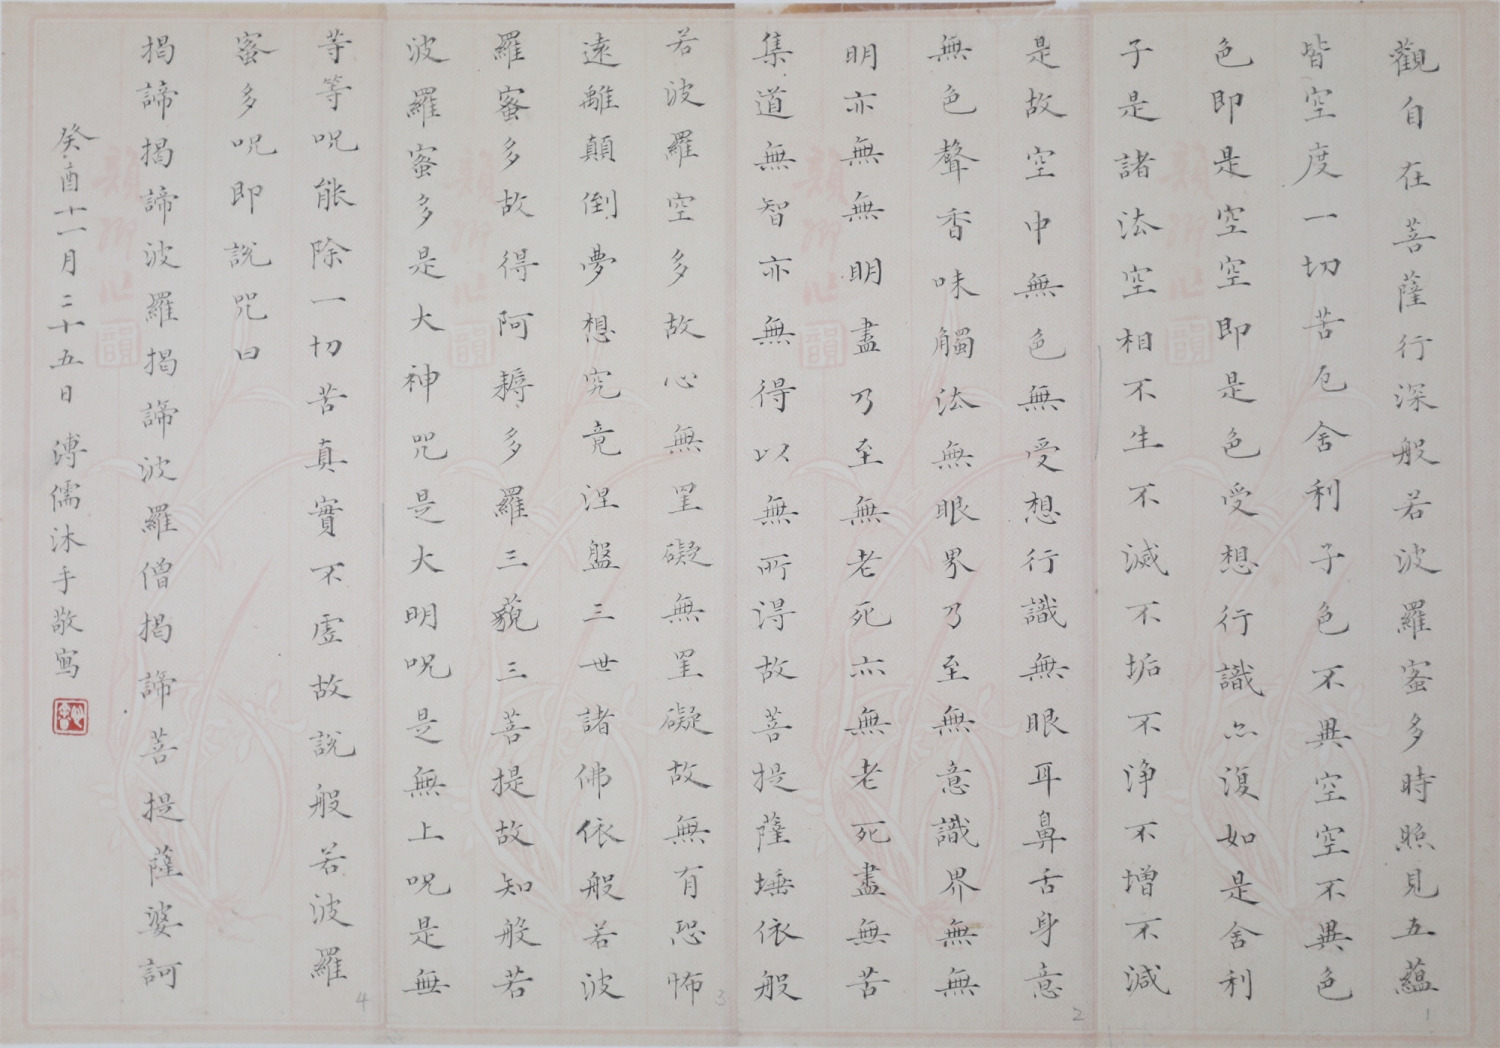 觀自在菩薩行深般若波羅蜜多時照見五蘊
皆空度一切苦厄舍利子色不異空空不異色
色即是空空即是色受想行識亦復如是舍利
子是諸法空相不生不滅不垢不淨不增不減
是故空中無色無受想行識無眼耳鼻舌身意
無色聲香味觸法無眼界乃至無意識界無無
明亦無無明盡乃至無老死亦無老死盡無苦
集道無智亦無得以無所得故菩提薩埵依般
若波羅空多故心無罣礙無罣礙故無有恐怖
遠離顛倒夢想究竟涅盤三世諸佛依般若波
羅蜜多故得阿耨多羅三藐三菩提故知般若
波羅蜜多是大神咒是大明咒是無上咒是無
等等咒能除一切苦真實不虛故說般若波羅
蜜多咒即說咒曰
揭諦揭諦波羅揭諦波羅僧揭諦菩提薩婆訶
癸酉十一月二十五日溥儒沐手敬寫
1
2
3
4